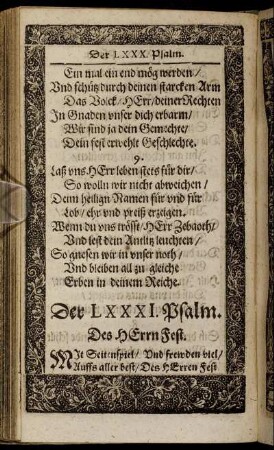 Der LXXX. Psalm.
Ein mal ein end mög werden/
Vnd schütz durch deinen starcken Arm
Das Volck/ HErr/ deiner Rechten
In Gnaden vnser dich erbarm/
Wir sind ja dein Gemechte/
Dein fest erwehlt Geschlechte.
9.
Laß vns HErr leben stets für dir/
So wolln wir nicht abweichen/
Deim heilign Namen für vnd für
Lob/ ehr vnd preiß erzeigen.
Wenn du vns tröst/ HErr Zebaoth/
Vnd lest dein Antlitz leuchten/
So gnesen wir in vnser noth/
Vnd bleiben all zu gleiche
Erben in deinem Reiche.
Der LXXXI. Psalm.
Des HErrn Fest.
MIt Seitenspiel/ Vnd frewden viel/
Auffs aller best/ Des HErren Fest